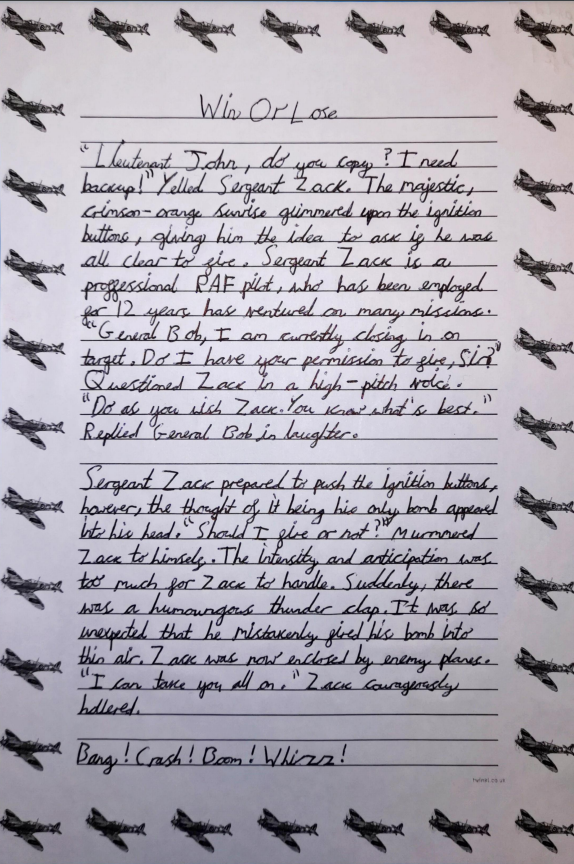 Win Or Lose
"Lieutenant John, do you copy? I need
backup!" Yelled Sergeant Zack. The majestic,
crimson-orange sunrise glimmered upon the ignition
buttons, giving him the idea to ask if he was
all clear to fire. Sergeant Zack is a
proffessional RAF pilot, who has been employed
for 12 years has ventured on many missions.
"General Bob, I am currently closing in on
target. Do I have your permission to fire, Sir?"
Questioned Zack in a high-pitch voice.
"Do as you wish Zack. You know what's best."
Replied General Bob in laughter.
Sergeant Zack prepared to push the ignition buttons,
however, the thought of it being his only bomb appeared
into his head. "Should I fire or not?" Murmured
Zack to himself. The intensity and anticipation was
too much for Zack to handle. Suddenly, there
was a humoungous thunder clap. It was so
unexpected that he mistakenly fired his bomb into
thin air. Zack was now enclosed by enemy planes.
"I can take you all on." Zack courageously
hollered.
Bang! Crash! Boom! Whizz!
twinkl.co.uk